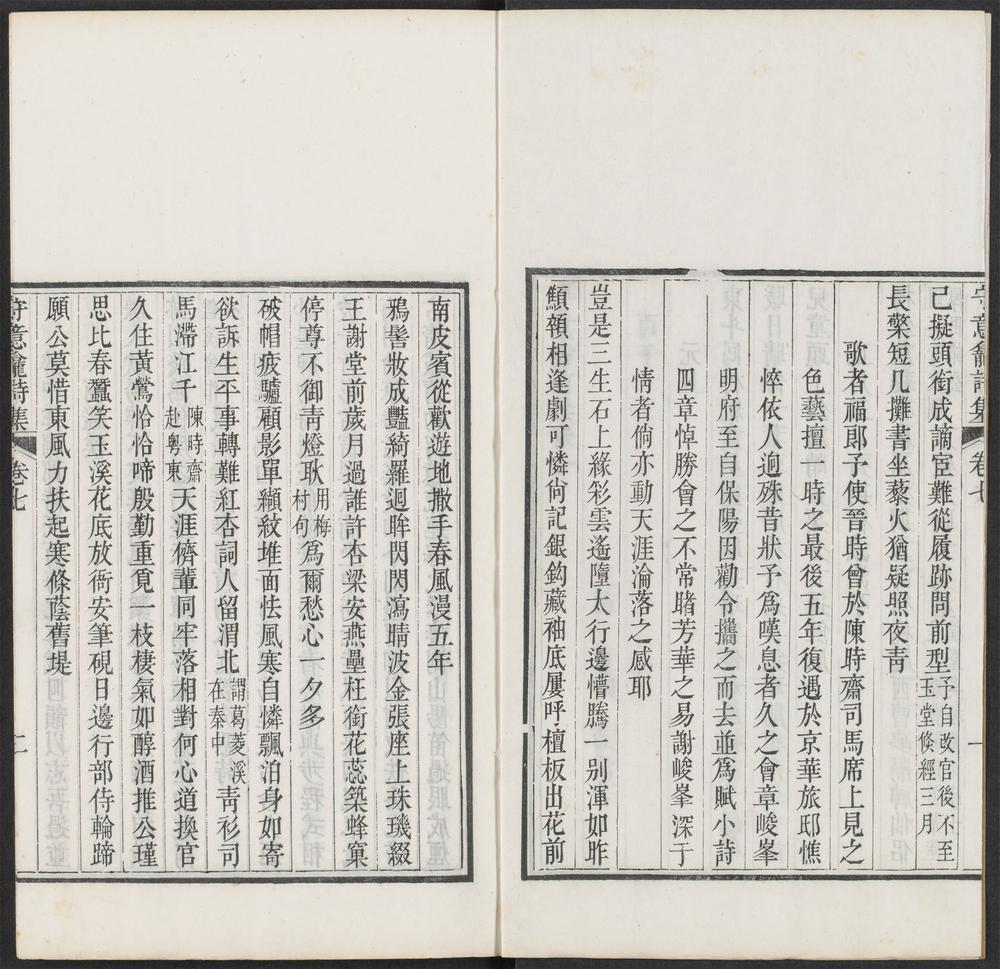 守意龕詩集 卷七 一
己擬頭銜成謫宦難從履跡問前型予自改官後不至玉堂倏經三月
長檠短几攤書坐藜火猶疑照夜靑
歌者福郞予使晉時曾於陳時齋司馬席上見之
色藝擅一時之最後五年復遇於京華旅邸憔
悴依人逈殊昔狀予爲嘆息者久之會章峻峯
明府至自保陽因勸令攜之而去並爲賦小詩
四章悼勝會之不常睹芳華之易謝峻峯深于
情者倘亦動天涯淪落之感耶
豈是三生石上緣彩雲遙墮太行邊懵騰一別渾如昨
顦顇相逢劇可憐尙記銀鈎藏袖底屢呼檀板出花前
南皮賓從歡遊地撒手春風漫五年
鴉髻妝成豔綺羅迴眸閃閃瀉晴波金張座上珠璣綴
王謝堂前歲月過誰許杏梁安燕壘枉銜花蕊築蜂窠
停尊不御靑燈耿用梅村句爲爾愁心一夕多
破帽疲驢顧影單纈紋堆面怯風寒自憐飄泊身如寄
欲訴生平事轉難紅杏詞人留渭北謂葛菱溪在秦中靑衫司
馬滯江千陳時齋赴粤東天涯儕輩同牢落相對何心道換官
久住黃鶯恰恰啼殷勤重覓一枝棲氣如醇酒推公瑾
思比春蠶笑玉溪花底放衙安筆硯日邊行部侍輪蹄
願公莫惜東風力扶起寒條蔭舊堤
守意龕詩集 卷七 二